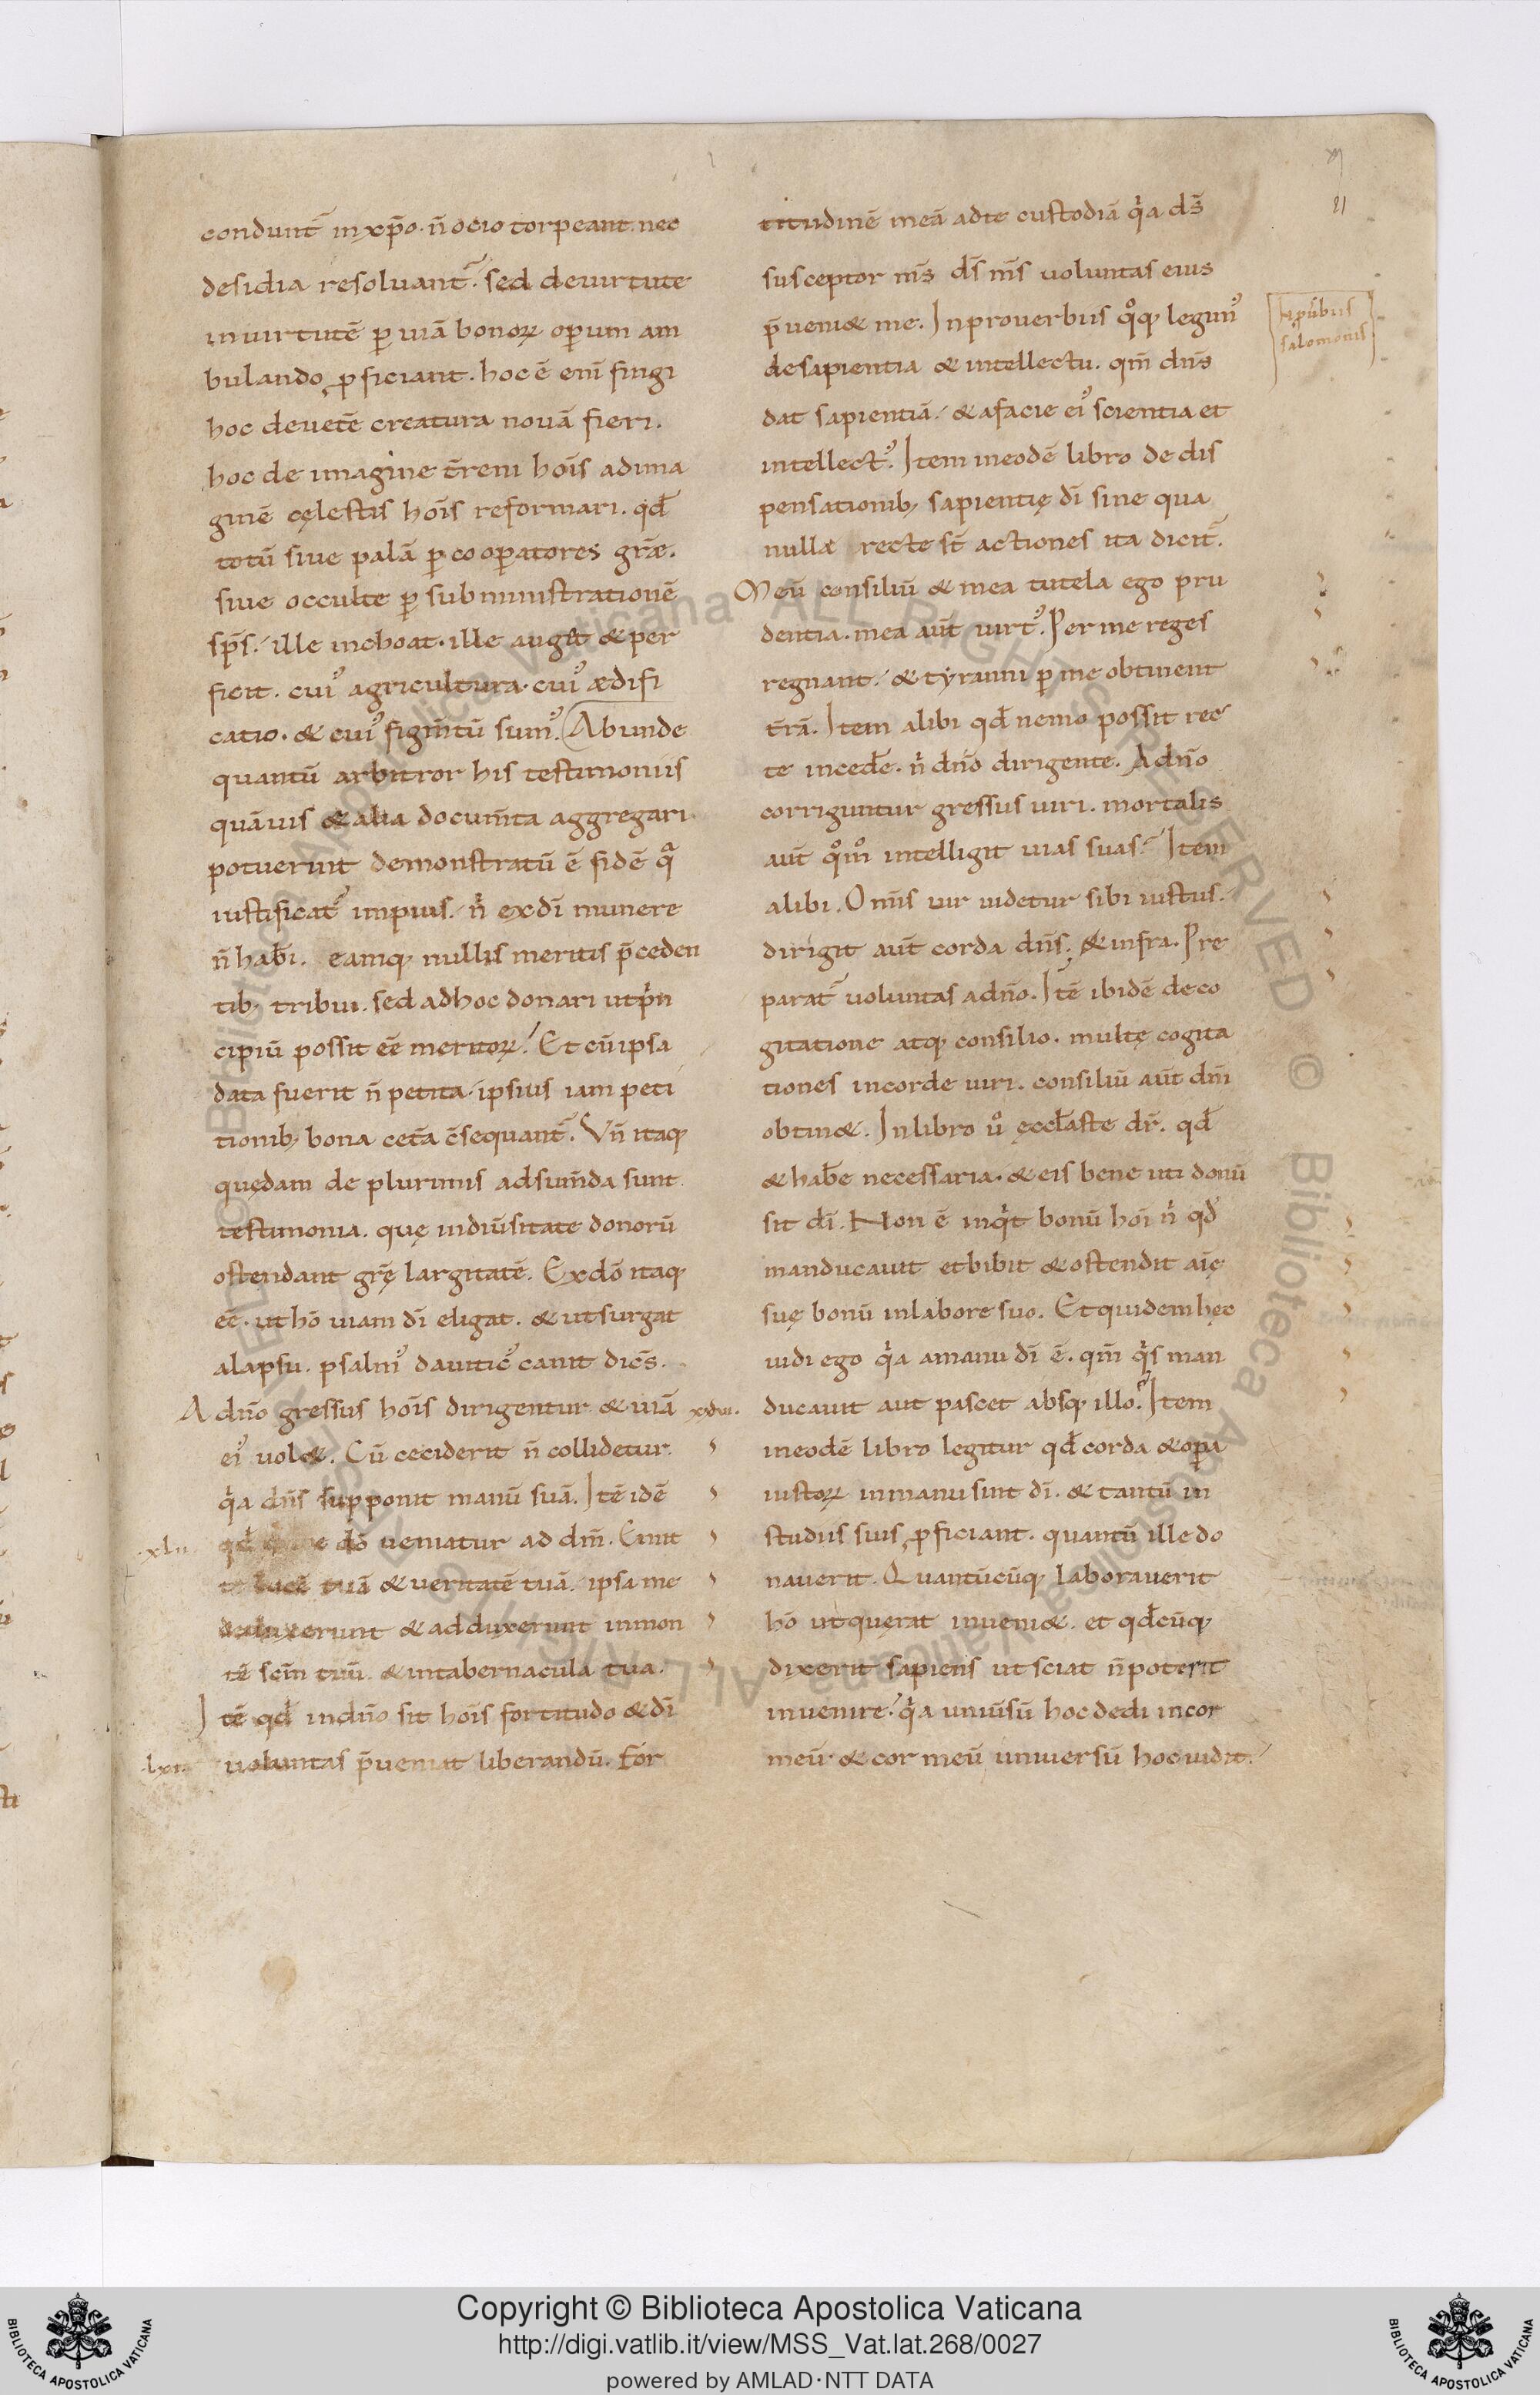 condunt̄ in xp̄o. n̄ ocio torpeant. nec
desidia resoluant̄. sed de uirtute
in uirtutē ꝑ uiā bonoꝝ oꝑum am
bulando ꝓficiant. hoc ē enī fingi
hoc de uet̄e creatura nouā fieri.
hoc de imagine t̄reni hoīs ad ima
ginē cęlestis hoīs reformari. qd̄
totū siue palā ꝑ cooꝑatores grāe.
siue occulte ꝑ subministrationē
sp̄s. ille inchoat. ille auget & per
ficit. cuiꝰ agricultura. cuiꝰ ædifi
catio. & cuiꝰ figm̄tū sumꝰ. Abunde
quantū arbitror his testimoniis
quāuis & alia docum̄ta aggregari
potuerint demonstratū ē fidē qͣ
iustificat̄ impius. nͥ ex dī munere
n̄ hab̄i. eamq; nullis meritis p̄ceden
tib; tribui. sed ad hoc donari ut pͥn
cipiū possit eē meritoꝝ. Et cū ipsa
data fuerit n̄ petita. ipsius iam peti
tionib; bona cet̄a c̄sequant̄. Vn̄ itaq;
quędam de plurimis adsum̄da sunt
testimonia. quę indiūsitate donorū
ostendant grę̄ largitatē. Ex dō itaq;
eē. ut hō uiam dī eligat. & ut surgat
a lapsu. psalmꝰ dauiticꝰ canit dicēs.
A dn̄o gressus hoīs dirigentur & uiā xxxvi.
eiꝰ uol&. Cū ceciderit n̄ collidetur
qͥa dn̄s supponit manū suā. Itē idē
xlii qd̄ dō ueniatur ad dm̄. Emit
te lucē tuā & ueritatē tuā. ipsa me
deduxerunt & adduxerunt in mon
tē scm̄ tuū & in tabernacula tua.
Itē qd̄ in dn̄o sit hoīs fortitudo & dī
uoluntas p̄ueniat liberandū. For
titudinē meā ad te custodiā qͥa ds̄
susceptor ms̄ ds̄ ms̄ uoluntas eius
p̄ueni& me. In prouerbiis qͦq; legimꝰ
de sapientia & intellectu. qm̄ dn̄s
dat sapientiā. & a facie eiꝰ scientia et
intellectꝰ. Item in eodē libro de dis
pensationib; sapientię dī sine qua
nullæ recte st̄ actiones ita dicit̄.
Meū consiliū & mea tutela ego pru
dentia. mea aūt uirtꝰ. Per me reges
regnant. & tyranni ꝑ me obtinent
t̄rā. Item alibi qd̄ nemo possit rec
te inced̄e. nͥ dn̄o dirigente. A dn̄o
corriguntur gressus uiri. mortalis
aūt qͦmͦ intelligit uias suas. Item
alibi. Om̄is uir uidetur sibi iustus.
dirigit aūt corda dn̄s. & infra. Pre
parat̄ uoluntas a dn̄o. Itē ibidē de co
gitatione atq; consilio. multę cogita
tiones in corde uiri. consiliū aūt dnī
obtin&. In libro uͦ ęccl̄aste dr̄. qd̄
& hab̄e necessaria. & eis bene uti donū
sit dī. Non ē inqͥt bonū hoī nͥ qd̄
manducauit et bibit & ostendit aīę
suę bonū in labore suo. Et quidem hęc
uidi ego qͥa a manu dī ē. qm̄ qͥs man
ducauit aut pascet absq; illo. Item
in eodē libro legitur qd̄ corda & oꝑa
iustoꝝ in manu sint dī. & tantū in
studiis suis ꝓficiant. quantū ille do
nauerit. Quantūcūq; laborauerit
hō ut quęrat inueni&. et qd̄cūq;
dixerit sapiens ut sciat n̄ poterit
inuenire. qͥa uniūsū hoc dedi in cor
meū & cor meū uniuersū hoc uidit.
salomonis
21
Copyright © Biblioteca Apostolica Vaticana
http://digi.vatlib.it/view/MSS_Vat.lat.268/0027
powered by AMLAD·NTT DATA